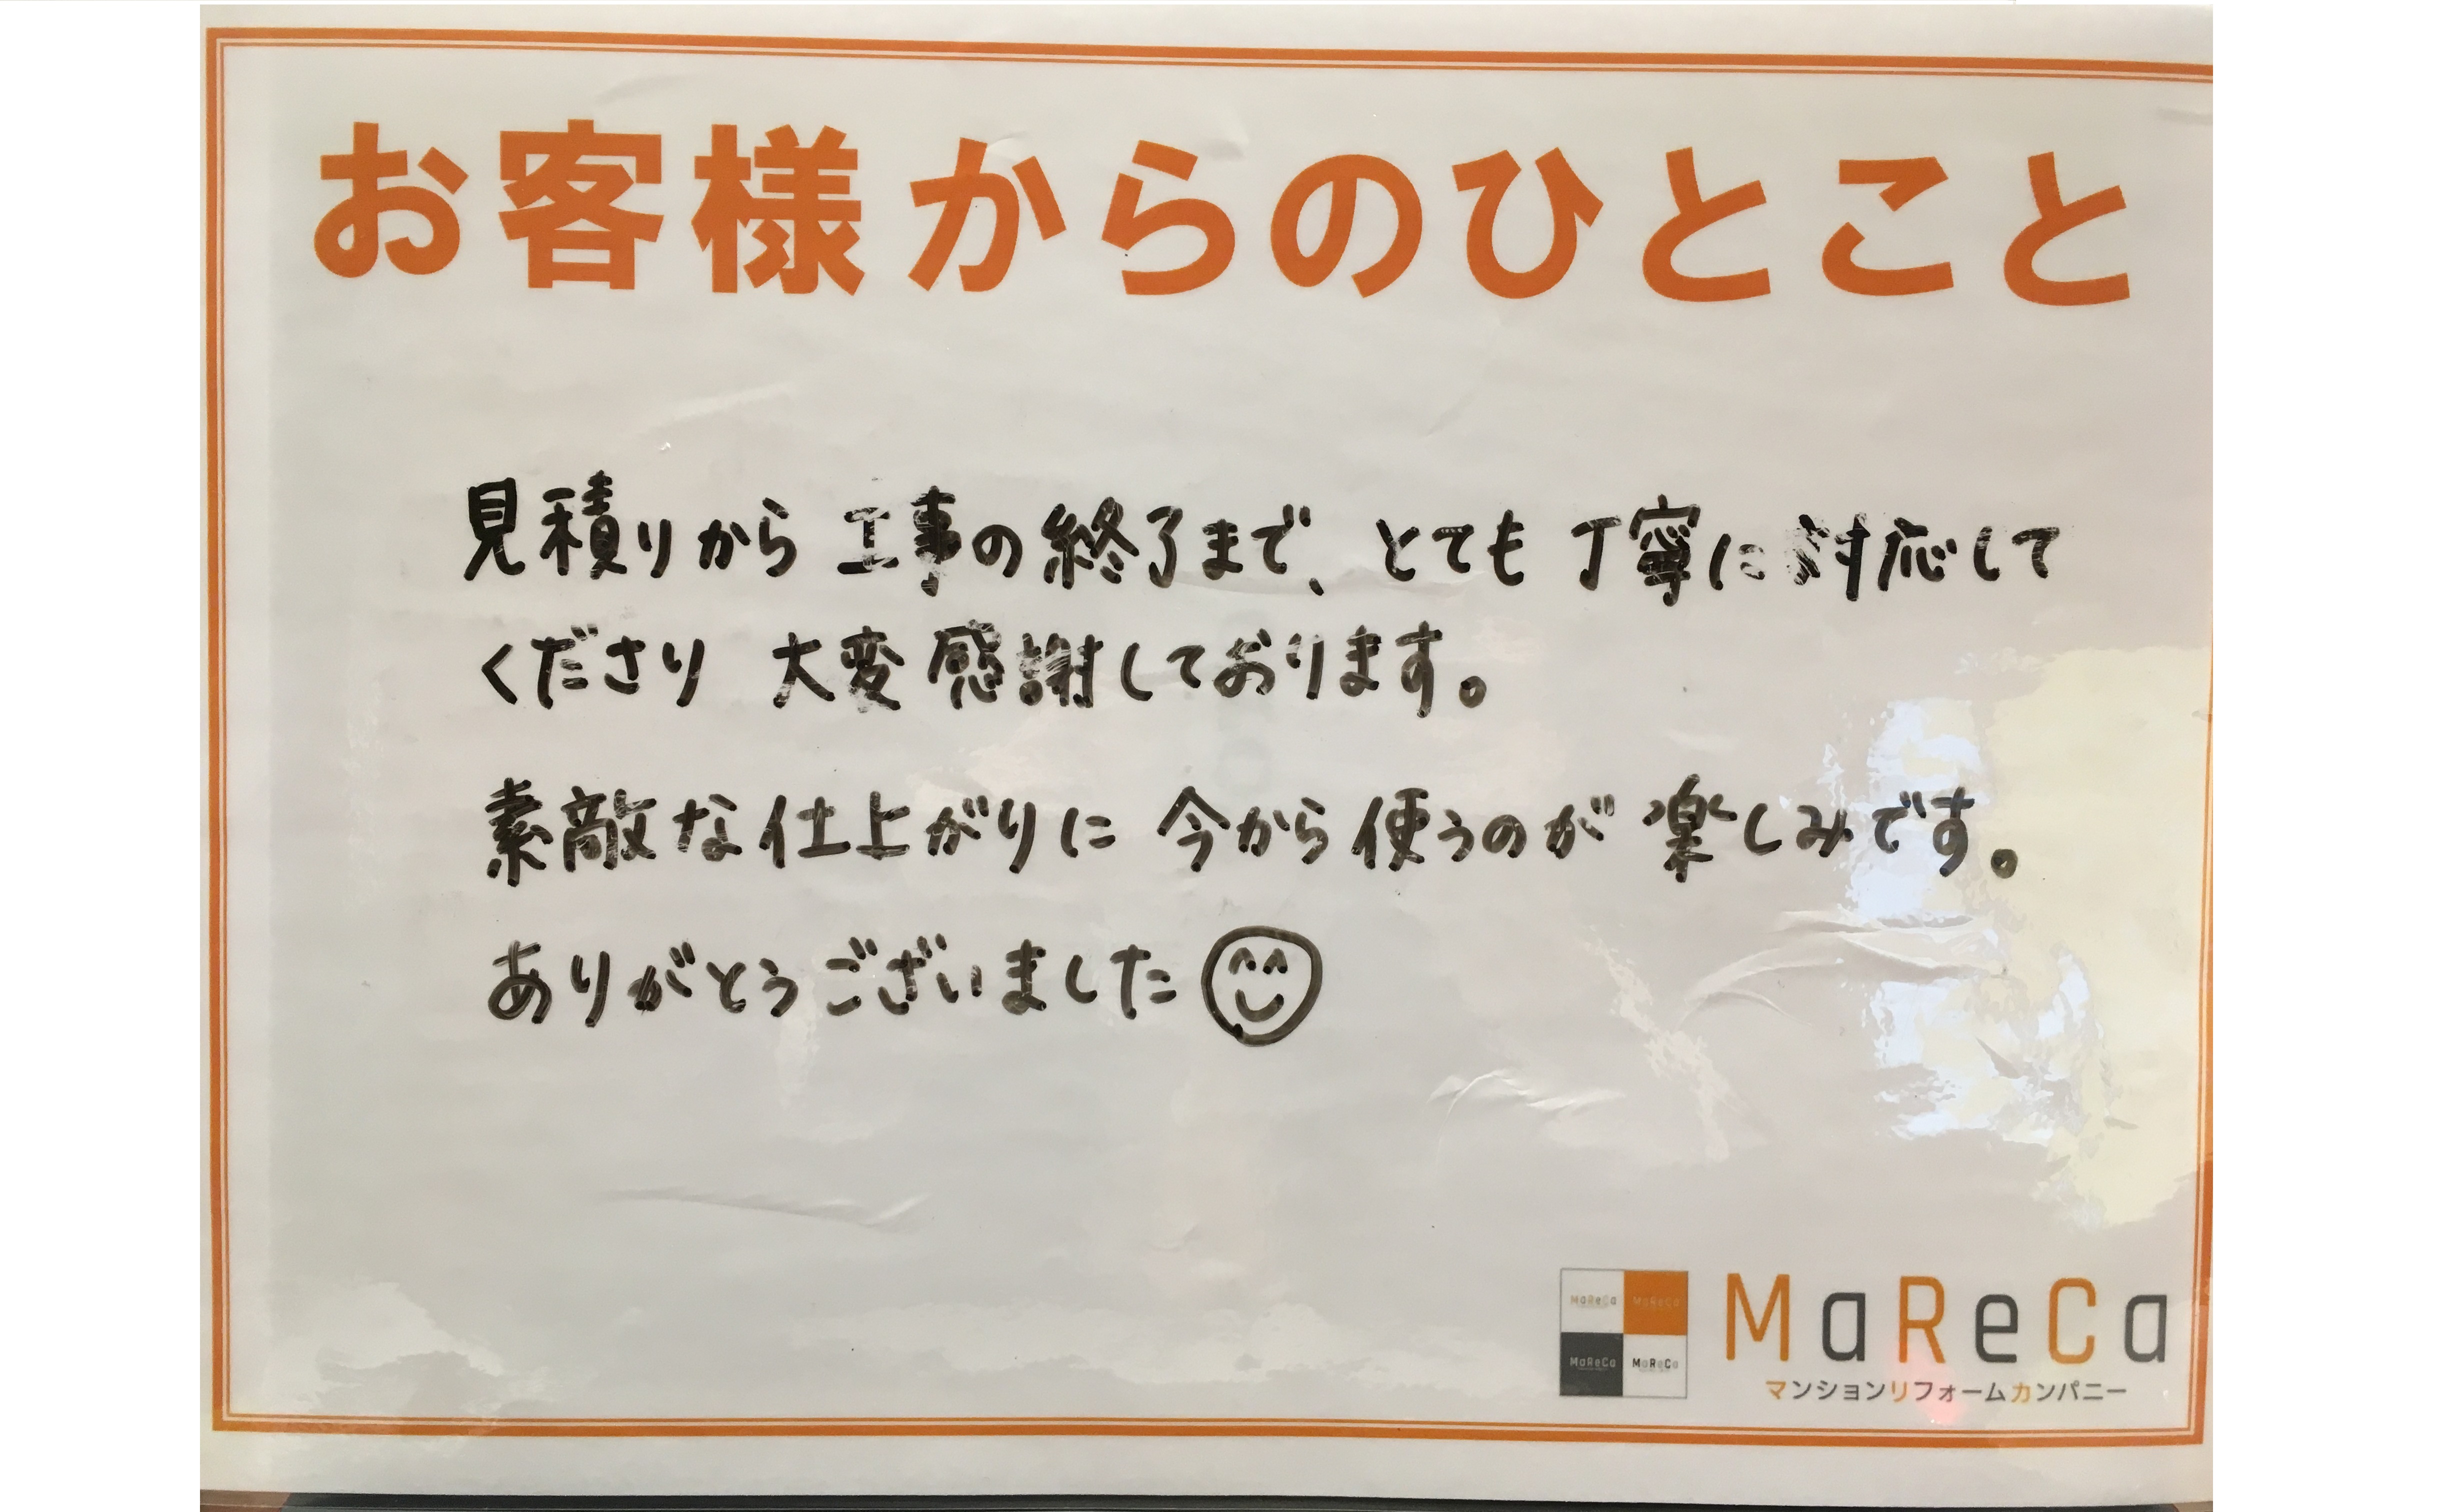 お客様からのひとこと
見積りから工事の終了まで、とても丁寧に対応して
くださり 大変感謝しております。
素敵な仕上がりに 今から使うのが楽しみです。
ありがとうございました
MaReCa MaReCa
MaReCa MaReCa
MaReCa
マンションリフォームカンパニー